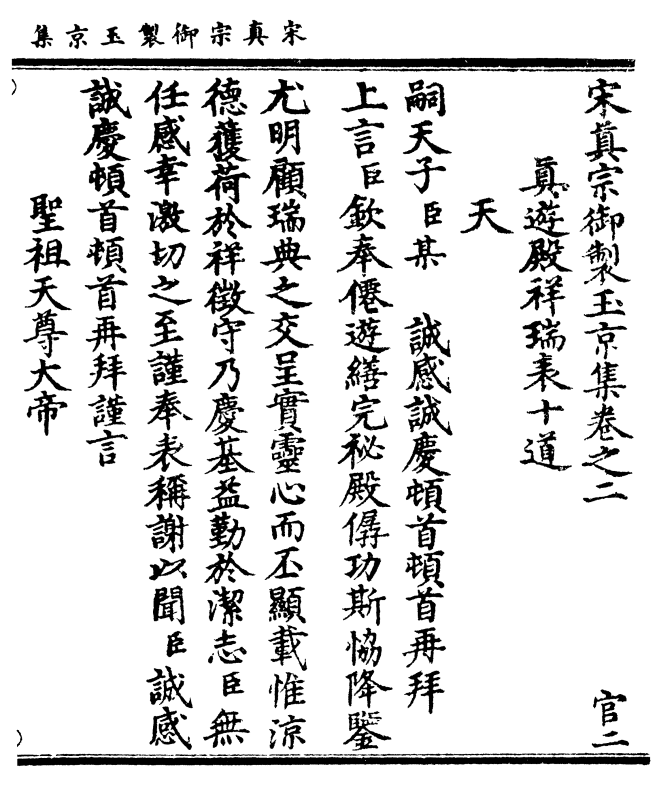 宋真宗御製玉京集
宋真宗御製玉京集卷之二 官二
真遊殿祥瑞表十道
天
嗣天子臣某 誠感誠慶頓首頓首再拜
上言臣欽奉僊遊繕完秘殿僝功斯恊降鑒
尤明顧瑞典之交呈實靈心而丕顯載惟涼
德獲荷於祥徵守乃慶基益勤於潔志臣無
任感幸激切之至謹奉表稱謝以聞臣誠感
誠慶頓首頓首再拜謹言
聖祖天尊大帝